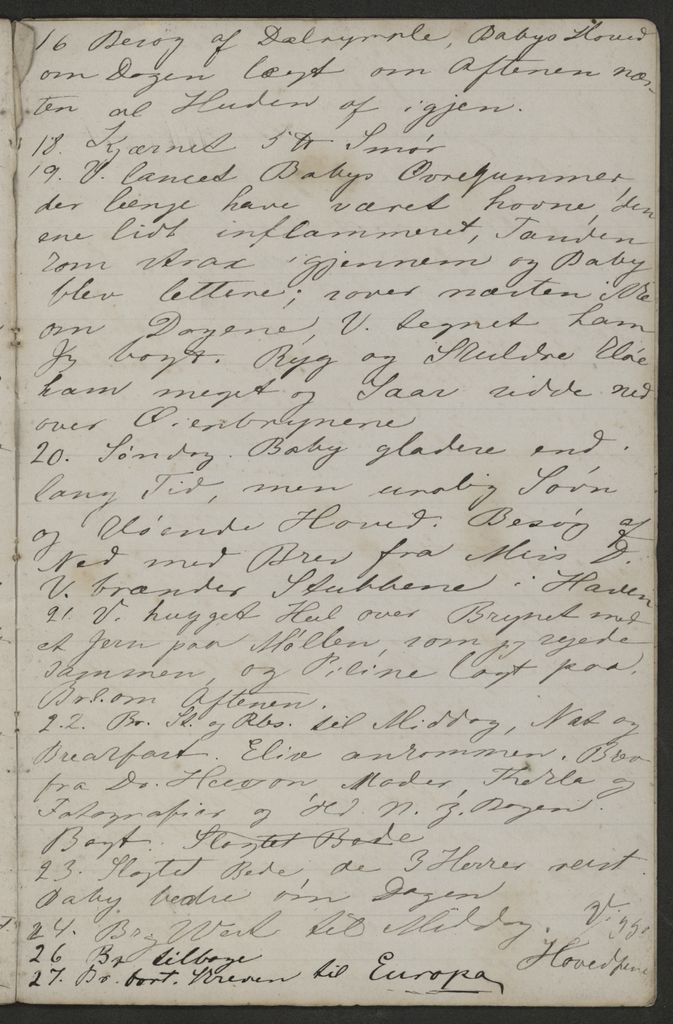 16 Besøg af Dalrymple, Babys Hoved
om Dagen lægt om Aftenen næs-
ten al Huden af igjen.
18. Kjærnet 5 ℔ Smør
19. V. lancet Babys Overgummer
der længe have været hovne, den
ene lidt inflammeret, Tanden
kom strax igjennem og Baby
blev lettere; sover næsten ikke
om Dagene, V. tegnet ham
Jeg bagt. Ryg og Skuldre kløe
ham meget og Saar sidde ned
over Øienbrynene
20. Søndag. Baby gladere end
lang Tid, men urolig Søvn
og kløende Hoved. Besøg af
Ned med Brev fra Miss D.
V. brænder Stubbene i Haven
21. V. hugget Hul over Brynet med
et Jern paa Møllen, som jeg syede
sammen, og Piline lagt paa.
Br. om Aftenen.
22. Br. St. og Rbs. til Middag, Nat og
Breakfast. Elix ankommen. Brev
fra Dr. Hewson Moder, Thekla og
Fotografier og old N. Z. Bogen.
Bagt. Slagtet Bede
23. Slagtet Bede, de 3 Herrer reist.
Baby bedre om Dagen
24. Br. West til Middag. V.
26 Br. tilbage Hovedpine
27. Br. bort. Skreven til Europa